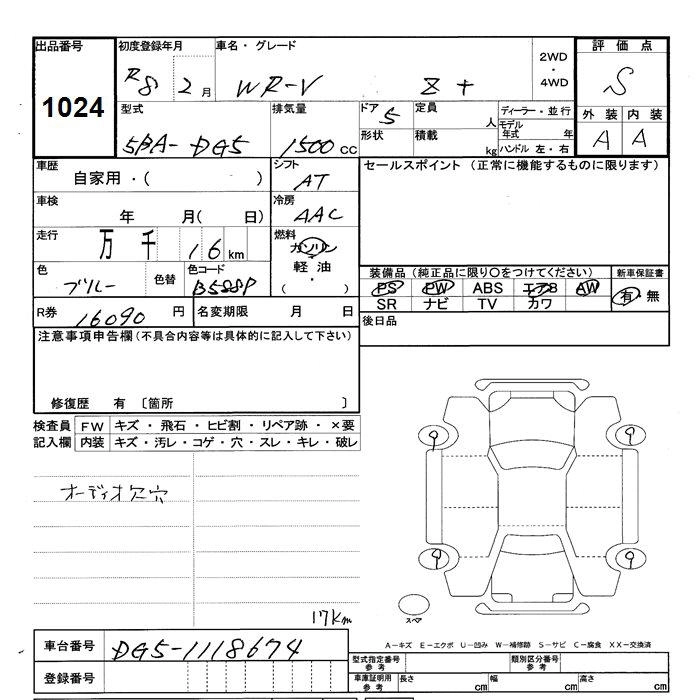 出品番号 初度登録年月 車名・グレード 2WD・4WD 評価点
1024 R8 2月 WR-V Z+ S
型式 排気量 ドア 5 定員 人 ディーラー・並行 外装 内装
5BA-DG5 1500cc 形状 積載 kg モデル年式 年 ハンドル 左・右 A A
車歴 シフト セールスポイント (正常に機能するものに限ります)
自家用・( ) AT
車検 冷房
年 月( 日) AAC
走行 燃料
万 千 16 km ガソリン
軽油
( )
色 色替 色コード 装備品 (純正品に限り○をつけてください) 新車保証書
ブルー B588P PS PW ABS エアB AW 有・無
SR ナビ TV カワ
R券 16090 円 名変期限 月 日 後日品
注意事項申告欄 (不具合内容等は具体的に記入して下さい)
修復歴 有 〔箇所 〕
検査員 FW キズ・飛石・ヒビ割・リペア跡・×要
記入欄 内装 キズ・汚レ・コゲ・穴・スレ・キレ・破レ
9 9
オーディオ欠穴
9 9
スペア
17km
A-キズ E-エクボ U-凹み W-補修跡 S-サビ C-腐食 XX-交換済
車台番号 DG5-1118674
型式指定番号 参考 類別区分番号 参考
登録番号 車庫証明用 参考 長さ cm 幅 cm 高さ cm